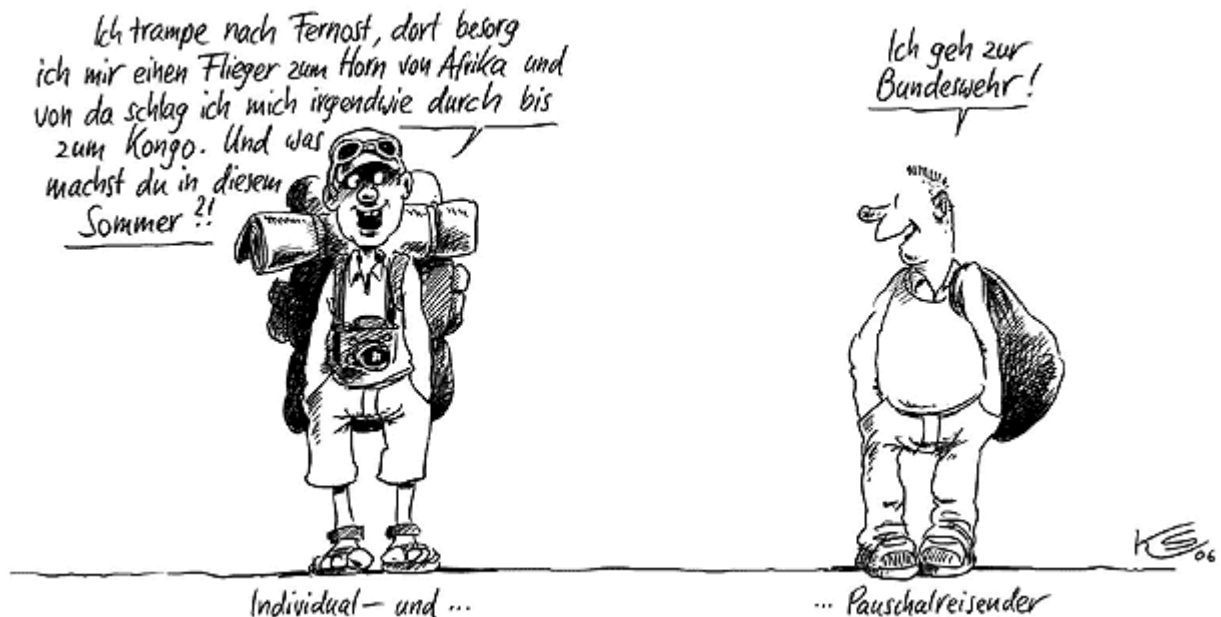 Ich trampe nach Fernost, dort besorg
ich mir einen Flieger zum Horn von Afrika und
von da schlag ich mich irgendwie durch bis
zum Kongo. Und was
machst du in diesem
Sommer?!
Ich geh zur
Bundeswehr!
06
Individual- und ...
... Pauschalreisender